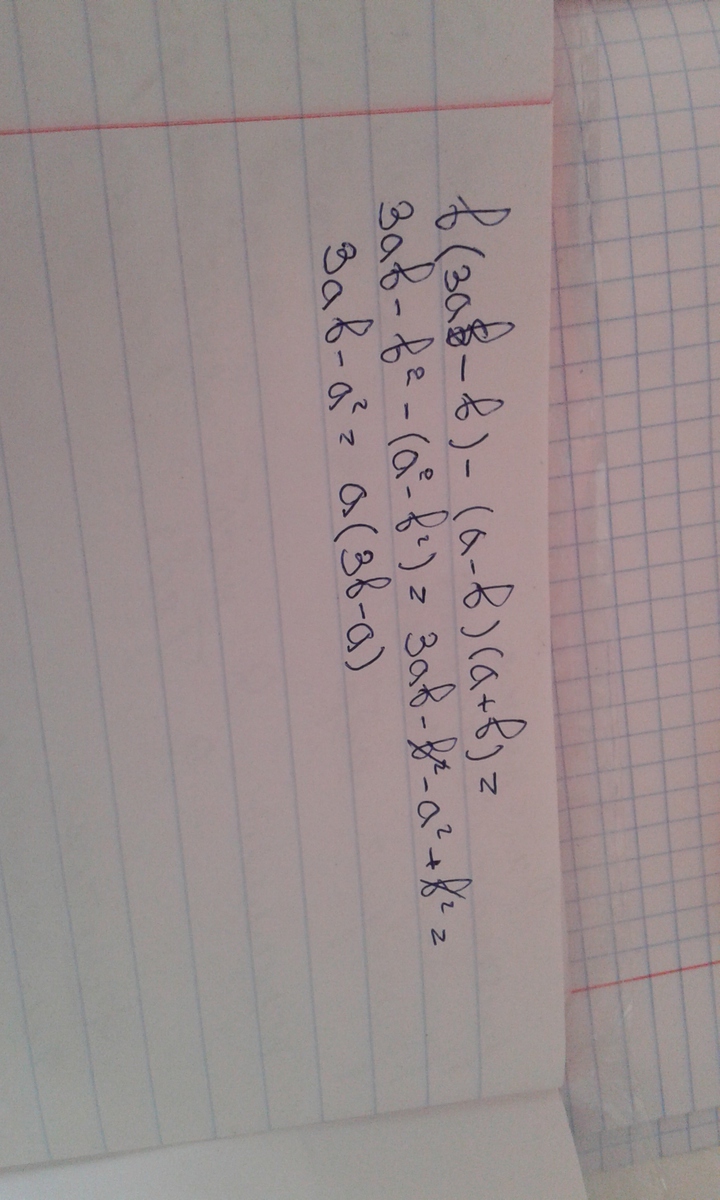 b(3ab-b)-(a-b)(a+b)=
3ab-b²-(a²-b²)=3ab-b²-a²+b²=
3ab-a²=a(3b-a)